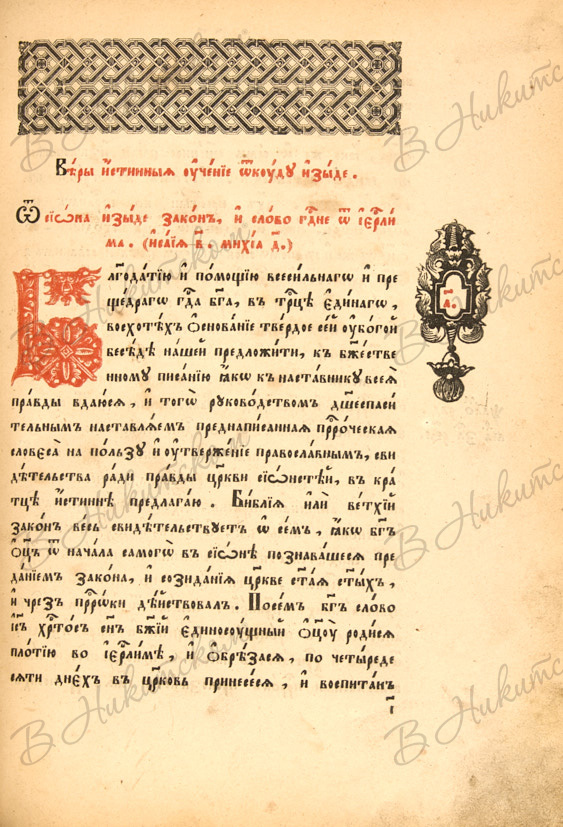 Вѣ́ры и҆́стинныѧ ᲂу҆че́нїе ѿкꙋ́дꙋ и҆зы́де.
Ѿ сїѡ́на и҆зы́де зако́нъ, и҆ сло́во гд҇не ѿ і҆ер҇ли́
ма. (и҆са́їѧ в҃. михі́а д҃.)
Бл҃года́тїю и҆ по́мощїю всеси́льнагѡ и҆ пре
ще́драгѡ гд҇а бг҃а, в тр҇цѣ є҆ди́нагѡ,
восхотѣ́хъ ѻ҆снова́нїе тве́рдое се́й ᲂу҆бо́гой
бесѣ́дѣ на́шей предложи́ти, къ бж҃е́стве
нному писа́нїю ꙗ҆́кѡ къ наста́вникꙋ всеѧ̀
пра́вды вдаю́сѧ, и҆ тогѡ̀ рꙋково́дствомъ дш҃еспаси́
тельнымъ наставлѧ́емъ преднапи́санная пр҇ро́ческая
словеса̀ на по́льзꙋ и҆ ᲂу҆твержє́нїе правосла́внымъ, сви
дѣ́тельства ра́ди пра́вды цр҃кви сїѡ́нстѣй, въ кра́
тцѣ и҆́стиннѣ предлага́ю. Би́блїѧ и҆лѝ ве́тхїй
зако́нъ ве́сь свидѣ́тельствꙋетъ ѡ҆ се́мъ, ꙗ҆́кѡ бг҃ъ
ѻ҆ц҃ъ ѿ нача́ла самогѡ̀ въ сїѡ́нѣ познава́шесѧ пре
да́нїемъ зако́на, и҆ созида́нїѧ цр҃кве ст҃а́ѧ ст҃ы́хъ,
и҆ чрез пр҇ро́ки дѣ́йствовалъ. Посе́мъ бг҃ъ сло́во
і҆с҃ъ хр҇то́съ сн҃ъ бж҃їй є҆диносꙋ́щный ѻ҆ц҃ꙋ̀ роди́сѧ
пло́тїю во і҆ер҇ли́мѣ, и҆ ѻ҆брѣ́засѧ, по четы́реде
сѧти дне́хъ въ цр҃ковь принесе́сѧ, и҆ воспита́нъ
і҆
а҃.
В. Никитском